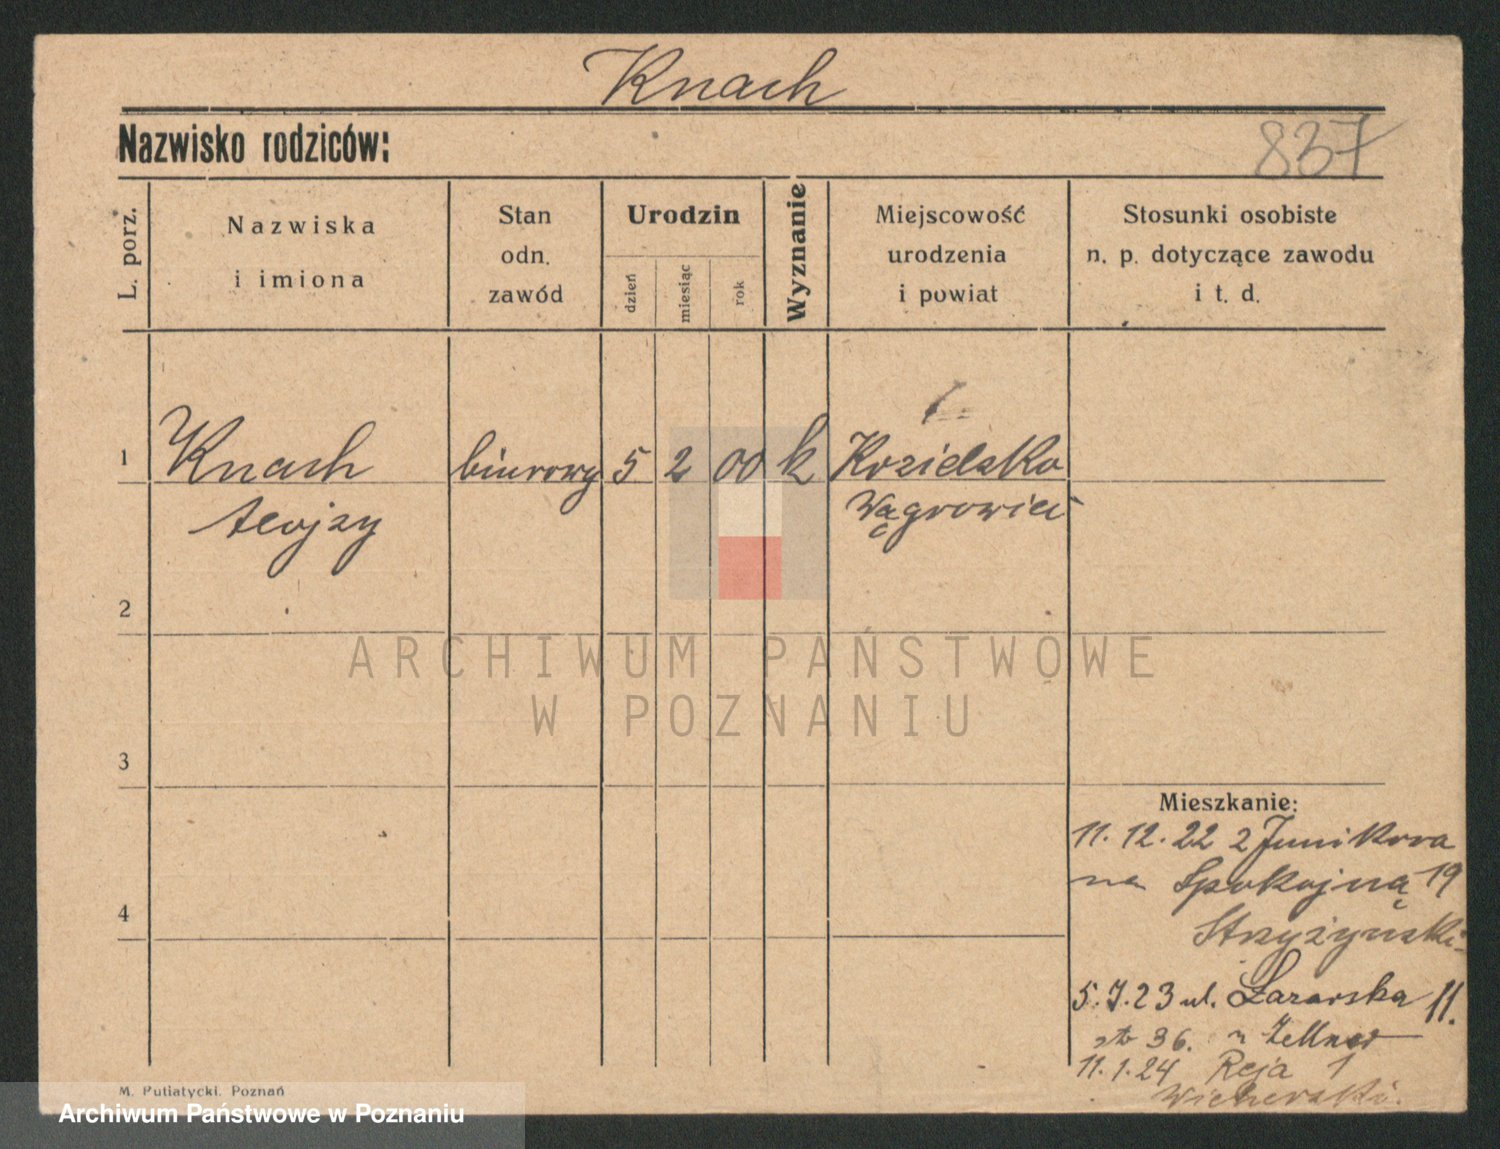 Knach
Nazwisko rodziców:
837
L. porz.
Nazwiska
i imiona
Stan
odn.
zawód
Urodzin
dzień
miesiąc
rok
Wyznanie
Miejscowość
urodzenia
i powiat
Stosunki osobiste
n. p. dotyczące zawodu
i t. d.
1 Knach biurowy 5 2 00 k Kozielsko
Alojzy Wągrowiec
2
ARCHIWUM PAŃSTWOWE
W POZNANIU
3
Mieszkanie:
11.12.22 z Junikowa
na Spokojną 19
Strzyżyński
4
5.7.23 ul. Łazarska 11.
36. Zellner
11.1.24 Reja 1
Wicherski.
M. Putiatycki. Poznań
Archiwum Państwowe w Poznaniu